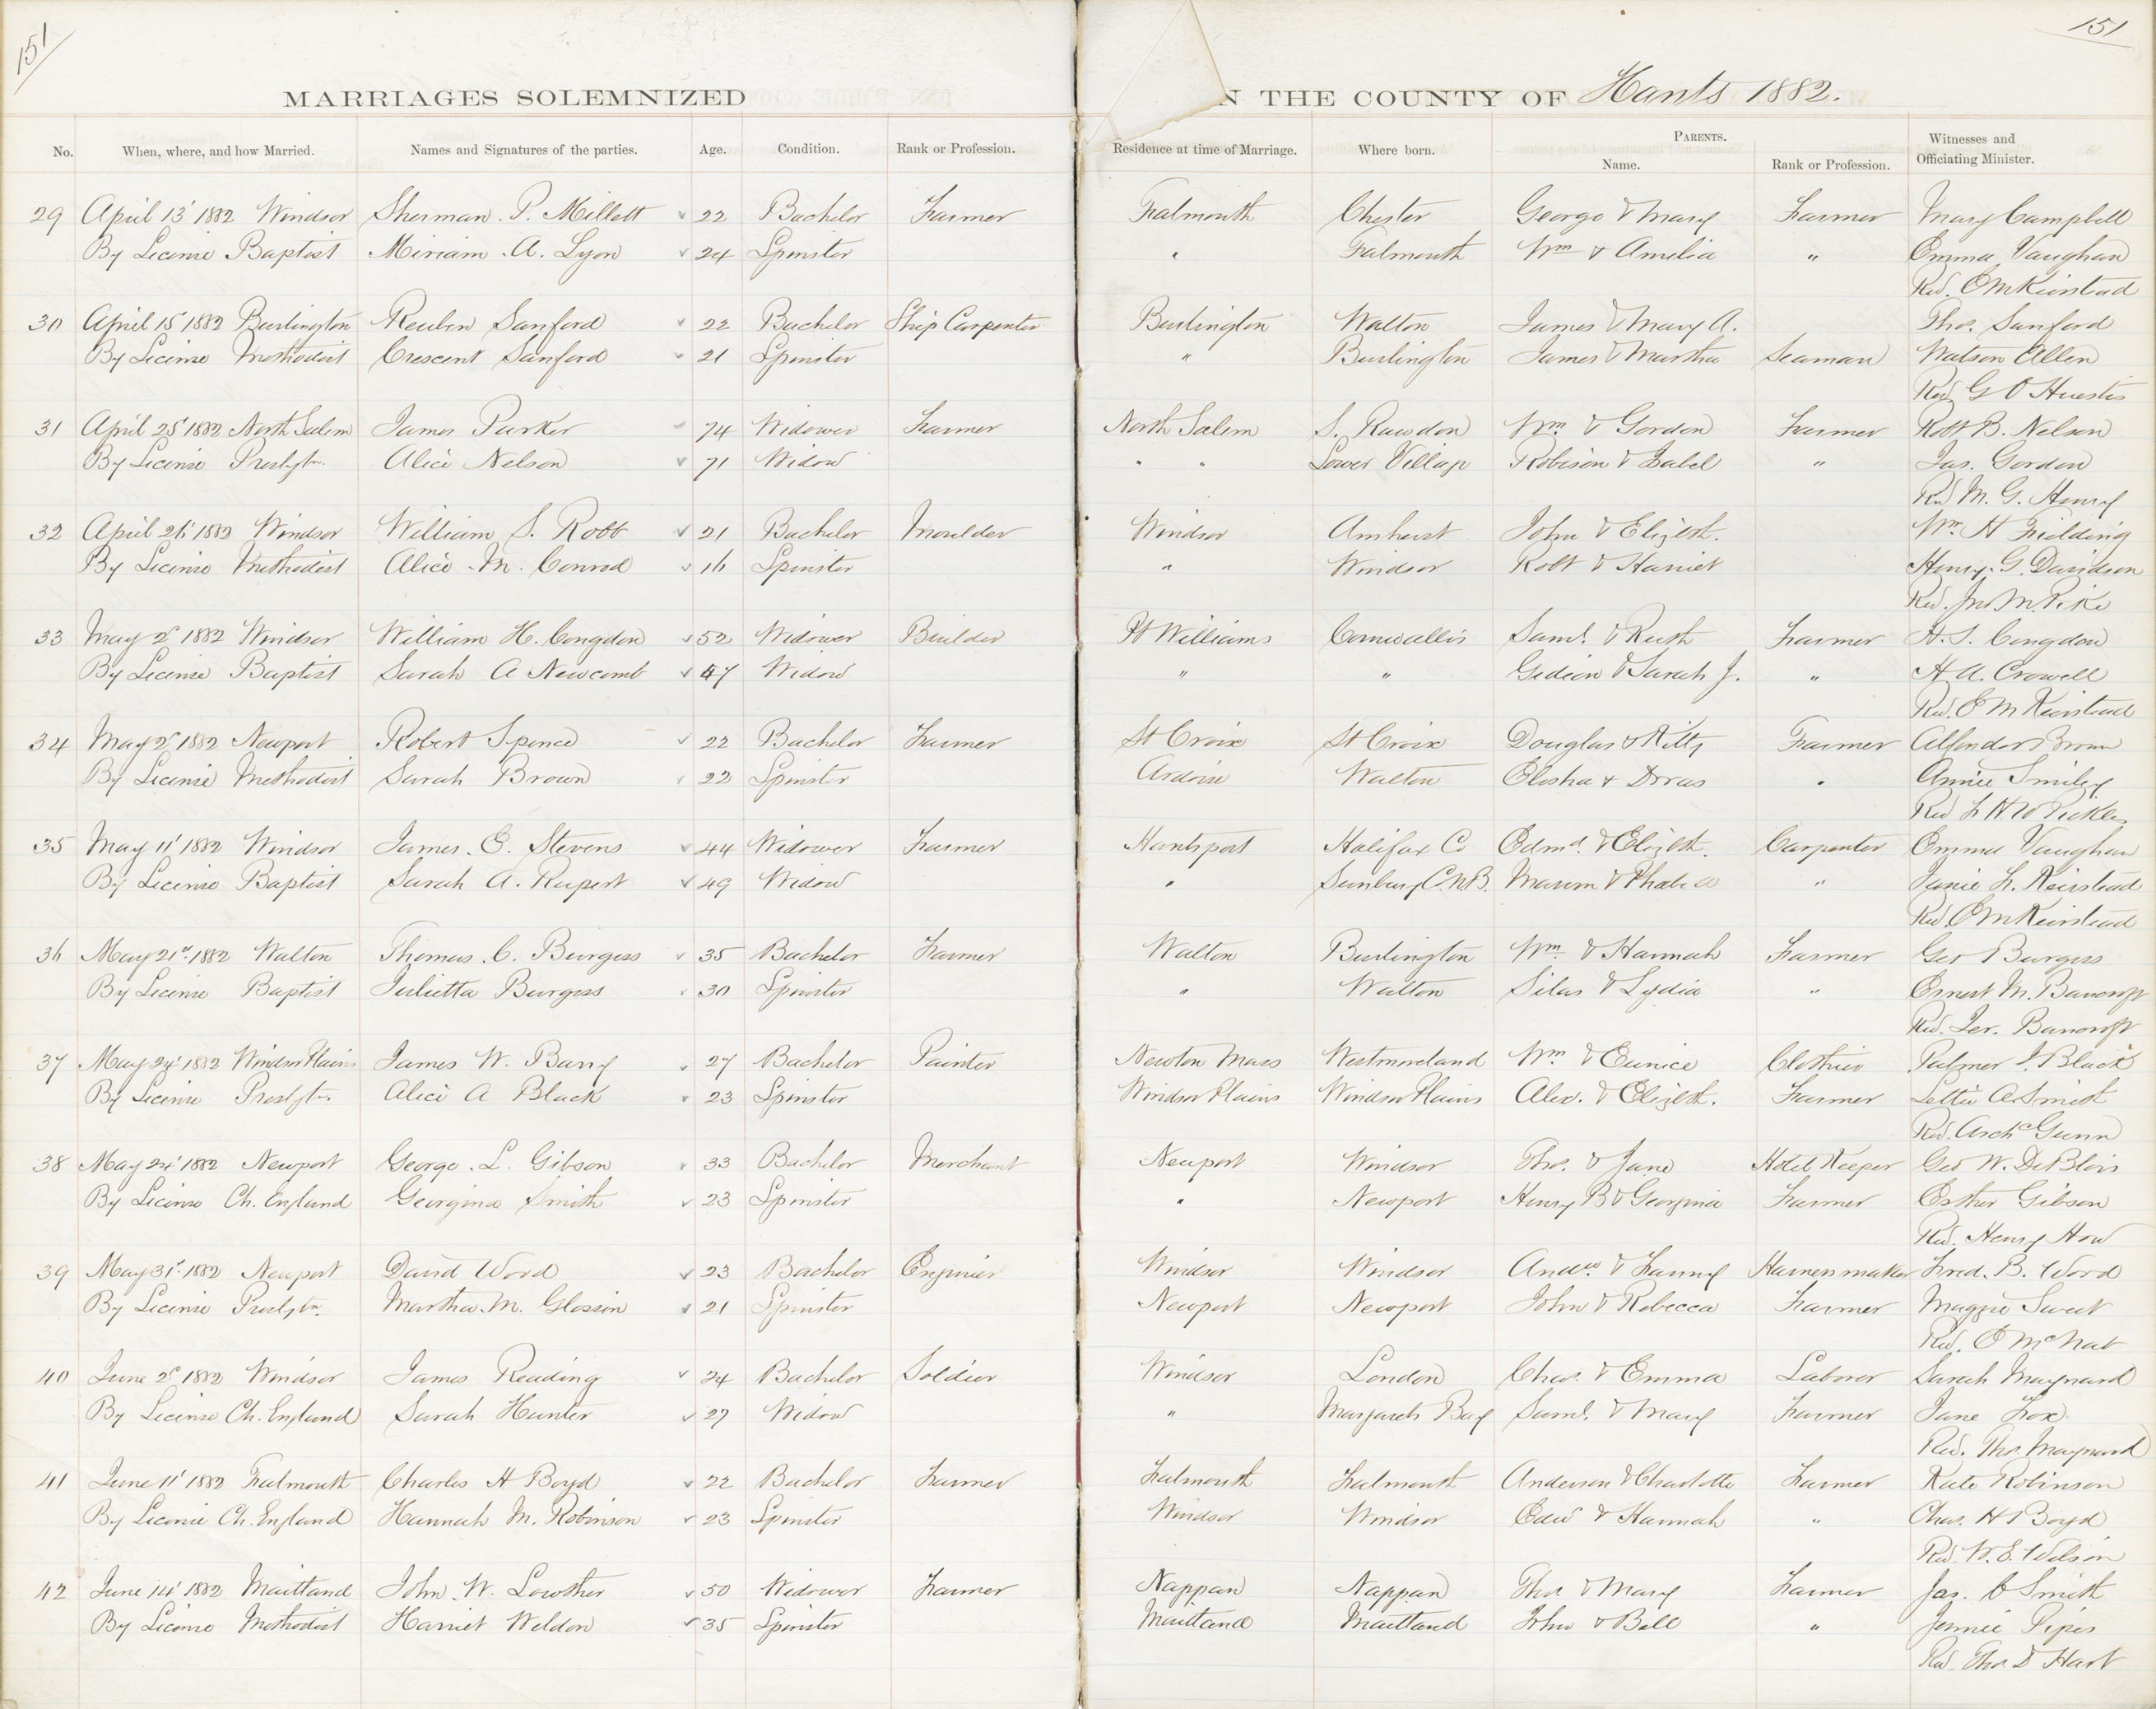 151
151
MARRIAGES SOLEMNIZED N THE COUNTY OF Hants 1882.
No. When, where, and how Married. Names and Signatures of the parties. Age. Condition. Rank or Profession. Residence at time of Marriage. Where born. PARENTS. Name. Rank or Profession. Witnesses and Officiating Minister.
29 April 13' 1882 Windsor Sherman. P. Millett 22 Bachelor Farmer Falmouth Chester George & Mary Farmer Mary Campbell
By License Baptist Miriam. A. Lyon 24 Spinster " Falmouth Wm & Amelia " Emma Vaughan
Rev. E M Keirstead
30 April 15' 1882 Burlington Reuben Sanford 22 Bachelor Ship Carpenter Burlington Walton James & Mary A. Thos. Sanford
By License Methodist Crescent Sanford 21 Spinster " Burlington James & Martha Seaman Watson Allen
Rev. G O Huestis
31 April 25' 1882 North Salem James Parker 74 Widower Farmer North Salem S. Rawdon Wm. & Gordon Farmer Robt B. Nelson
By License Presbytn. Alice Nelson 71 Widow " " Lower Village Robison & Isabel " Jas. Gordon
Rev M. G. Henry
32 April 26' 1882 Windsor William S. Robb 21 Bachelor Moulder Windsor Amherst John & Elizbth. Wm. H Fielding
By License Methodist Alice. M. Conrod 16 Spinster " Windsor Robt & Harriet Henry. G. Davidson
Rev. Jno. M. Pike
33 May 2d 1882 Windsor William H. Congdon 52 Widower Builder Pt Williams Cornwallis Saml. & Ruth Farmer H. S. Congdon
By License Baptist Sarah A Newcomb 47 Widow " " Gideon & Sarah J. " H. A. Crowell
Rev. E M Keirstead
34 May 2d 1882 Newport Robert Spence 22 Bachelor Farmer St Croix St Croix Douglas & Kitty Farmer Brown
By License Methodist Sarah Brown 22 Spinster Ardoise Walton Elisha & Dorcas " Annie Smiley
Rev F H W Pickles
35 May 11' 1882 Windsor James. E. Stevens 44 Widower Farmer Hantsport Halifax Co Edmd. & Elizbth. Carpenter Emma Vaughan
By License Baptist Sarah A. Rupert 49 Widow " Sunbury C. N.B. & " Janie L. Keirstead
Rev. E M Keirstead
36 May 21st. 1882 Walton Thomas. C. Burgess 35 Bachelor Farmer Walton Burlington Wm. & Hannah Farmer Geo Burgess
By License Baptist Julietta Burgess 30 Spinster " Walton Silas & Lydia " Ernest M. Bancroft
Rev. Jer. Bancroft
37 May 24' 1882 Windsor Plains James W. Barry 27 Bachelor Painter Newton Mass Westmoreland Wm & Eunice Clothier Palmer J. Black
By License Presbytn. Alice A Black 23 Spinster Windsor Plains Windsor Plains Alex. & Elizbth. Farmer Lettie A. Smith
Rev. Archd Gunn
38 May 24' 1882 Newport George. L. Gibson 33 Bachelor Merchant Newport Windsor Thos. & Jane Hotel Keeper Geo W. DeBlois
By License Ch. England Georgina Smith 23 Spinster " Newport Henry B & Georgina Farmer Esther Gibson
Rev. Henry How
39 May 31st. 1882 Newport David Wood 23 Bachelor Engineer Windsor Windsor Andw. & Fanny Harness maker Fred. B. Wood
By License Presbytn. Martha. M. Glossin 21 Spinster Newport Newport John & Rebecca Farmer Maggie Sweet
Rev. E McNab
40 June 2d 1882 Windsor James Reading 24 Bachelor Soldier Windsor London Chas. & Emma Laborer Sarah Maynard
By License Ch. England Sarah Hunter 27 Widow " Margarets Bay Saml. & Mary Farmer Jane Fox
Rev. Thos. Maynard
41 June 11' 1882 Falmouth Charles H Boyd 22 Bachelor Farmer Falmouth Falmouth Anderson & Charlotte Farmer Kate Robinson
By License Ch. England Hannah M. Robinson 23 Spinster Windsor Windsor Edwd & Hannah " Chas. H Boyd
Rev. W. E. Wilson
42 June 14' 1882 Maitland John. W. Lowther 50 Widower Farmer Nappan Nappan Thos & Mary Farmer Jas. C Smith
By License Methodist Harriet Weldon 35 Spinster Maitland Maitland John & Bell " Jennie Pipes
Rev. Thos. D Hart